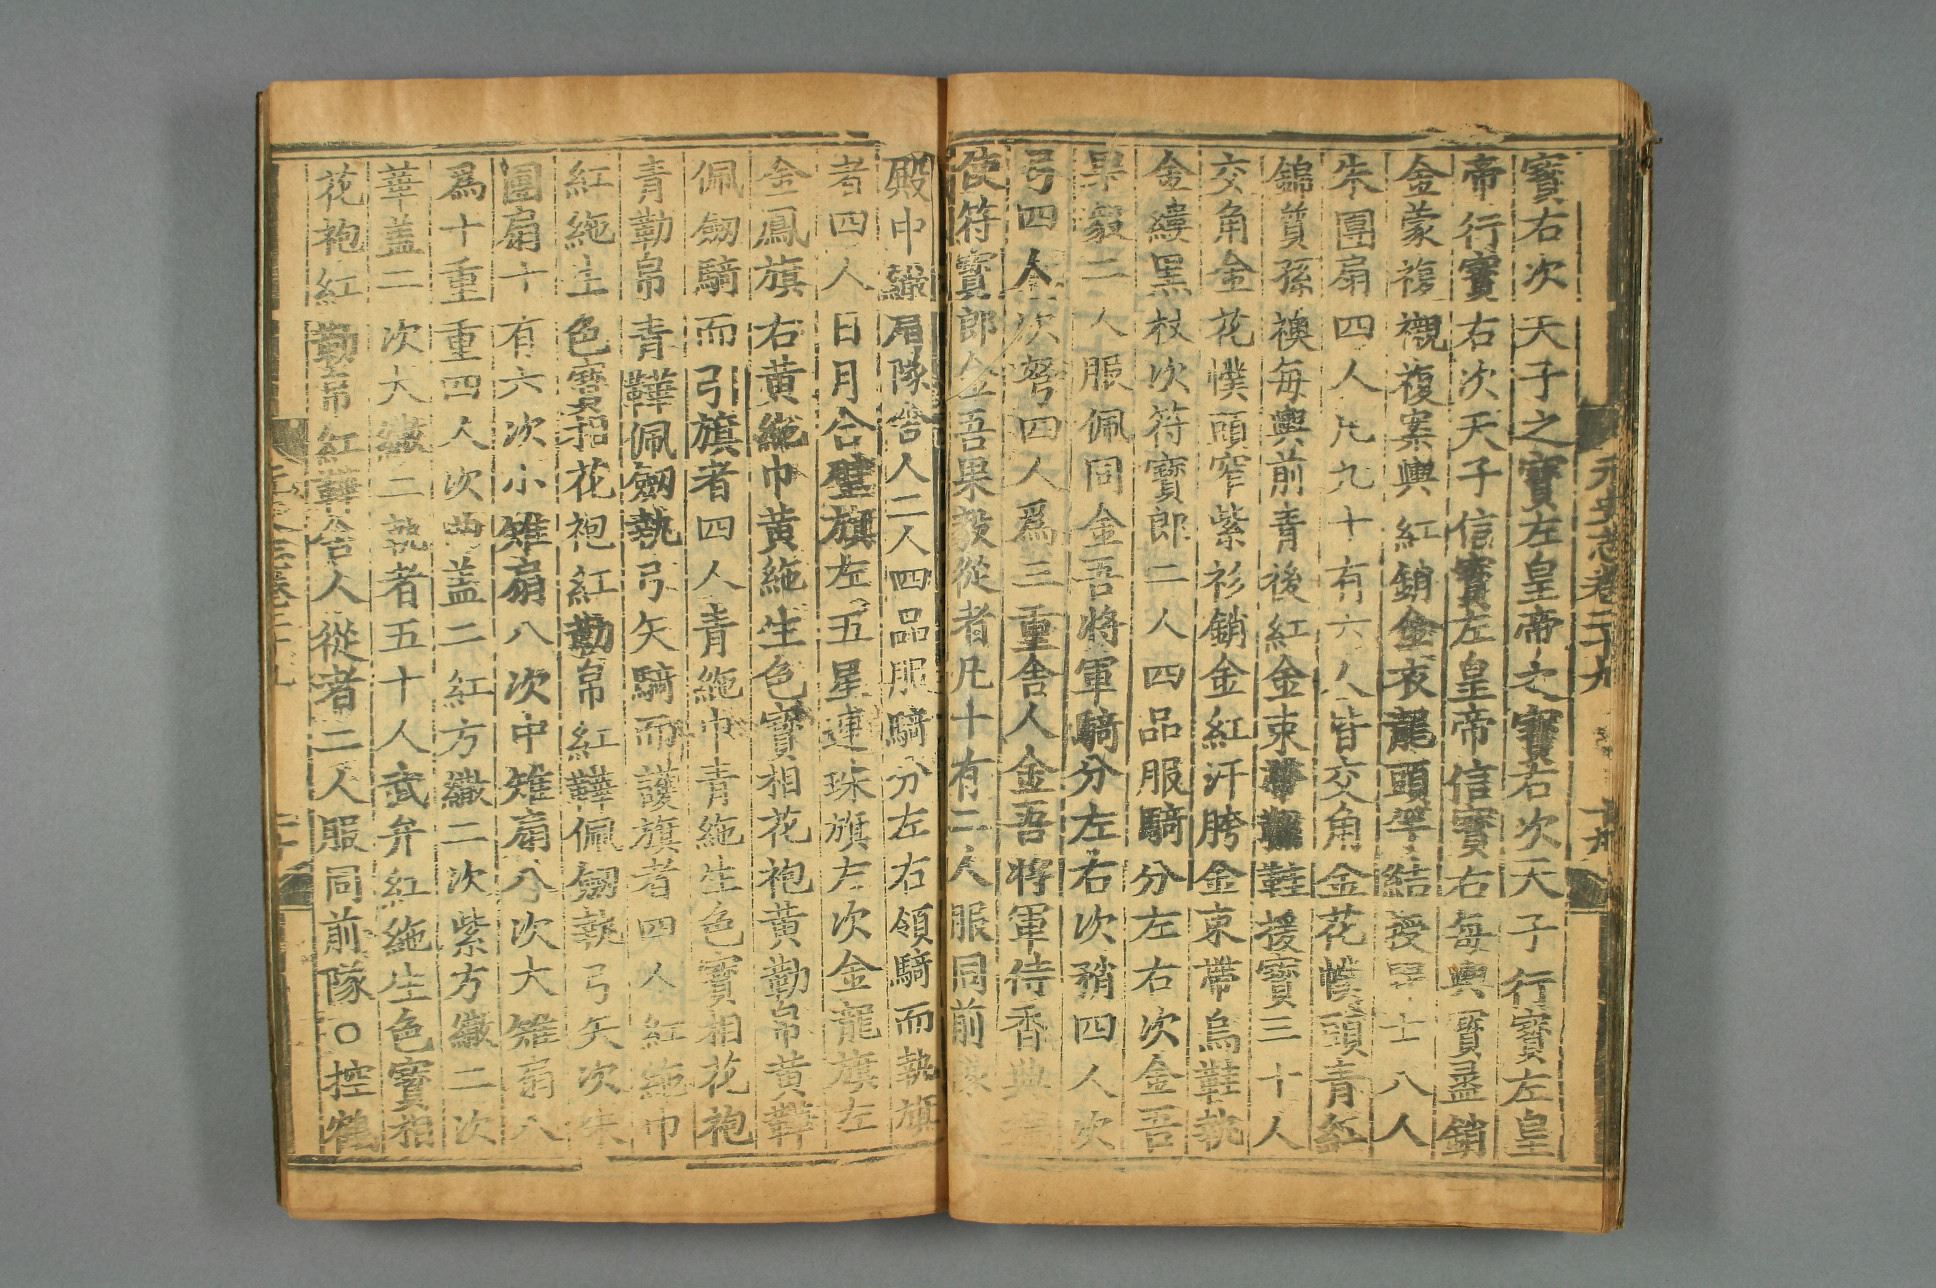 元史志卷二十九
十九
寶右次天子之寶左皇帝之寶右次天子行寶左皇
帝行寶右次天子信寶左皇帝信寶右每輿寶盝銷
金蒙複襯複案輿紅銷金衣龍頭竿結綬舁士八人
朱團扇四人凡九十有六人皆交角金花幞頭青紅
錦質孫襖每輿前青後紅金束帶鞋援寶三十人
交角金花幞頭窄紫衫銷金紅汗胯金束帶烏鞋執
金縷黑杖次符寶郎二人四品服騎分左右次金吾
果毅二人服佩同金吾將軍騎分左右次矟四人次
弓四人次弩四人爲三重舍人金吾將軍侍香典
使符寶郎金吾果毅從者凡十有二人服同前隊
殿中繖扇隊舍人二人四品服騎分左右領騎而執旗
者四人日月合璧旗左五星連珠旗右次金龍旗左
金鳳旗右黃絁巾黃絁生色寶相花袍黃勒帛黃鞾
佩劔騎而引旗者四人青絁巾青絁生色寶相花袍
青勒帛青鞾佩劔執弓矢騎而護旗者四人紅絁巾
紅絁生色寶相花袍紅勒帛紅鞾佩劔執弓矢次朱
團扇十有六次小雉扇八次中雉扇八次大雉扇八
爲十重重四人次曲盖二紅方繖二次紫方繖二次
華盖二次大繖二執者五十人武弁紅絁生色寶相
花袍紅勒帛紅鞾舍人從者二人服同前隊○控鶴